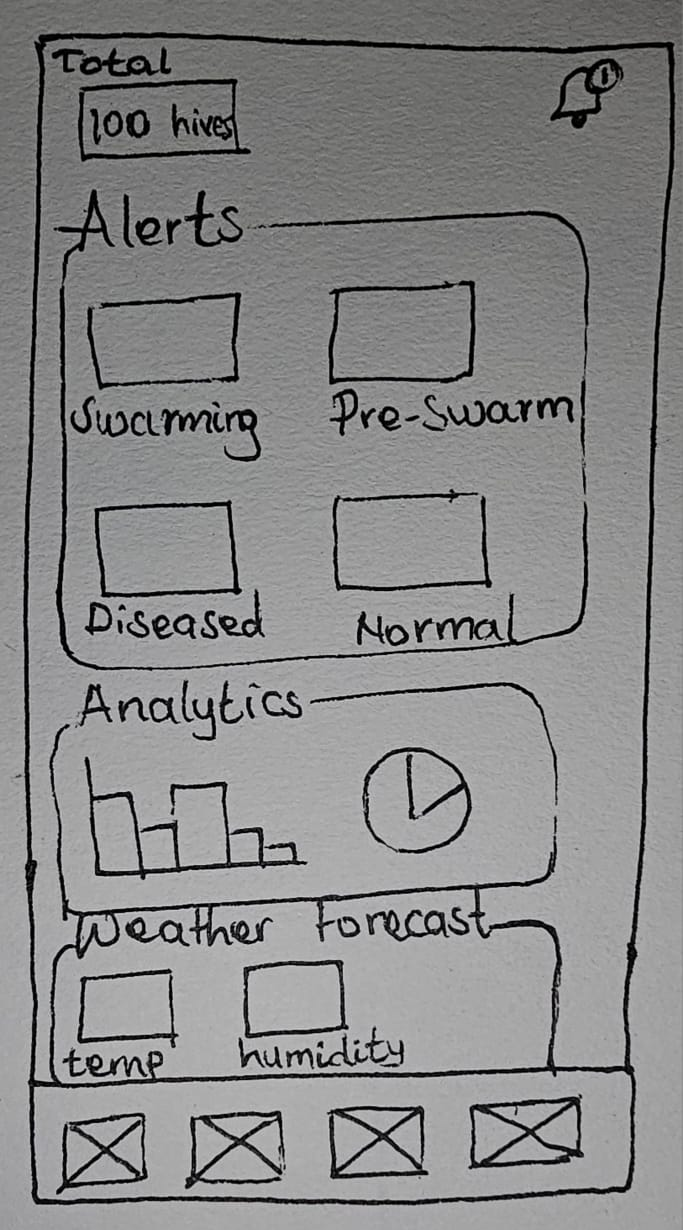 Total
1
100 hives
Alerts
Swarming Pre-Swarm
Diseased Normal
Analytics
Weather Forecast
temp humidity